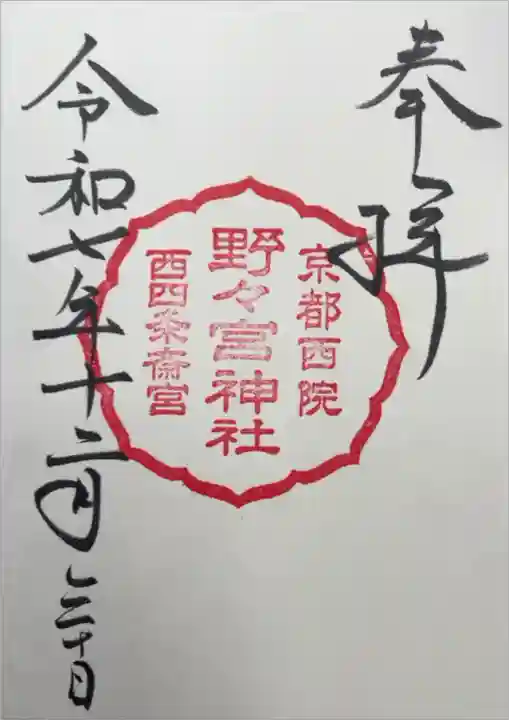 奉拝
京都西院
野々宮神社
西四条斎宮
令和七年十二月二十日